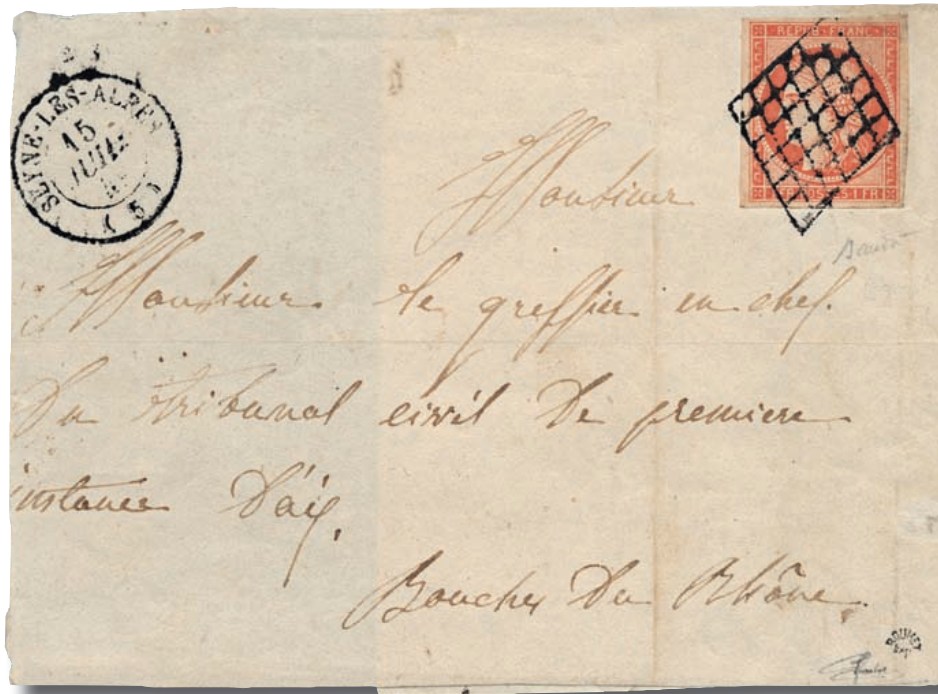 SEYNE-LES-ALPES
15
JUIL
(5)
REPUB FRANC
1 FR
POSTES
1 FR
Monsieur
Monsieur le greffier en chef.
Du tribunal civil De premiere
instance D'aix.
Bouches Du Rhône.
ROUMET